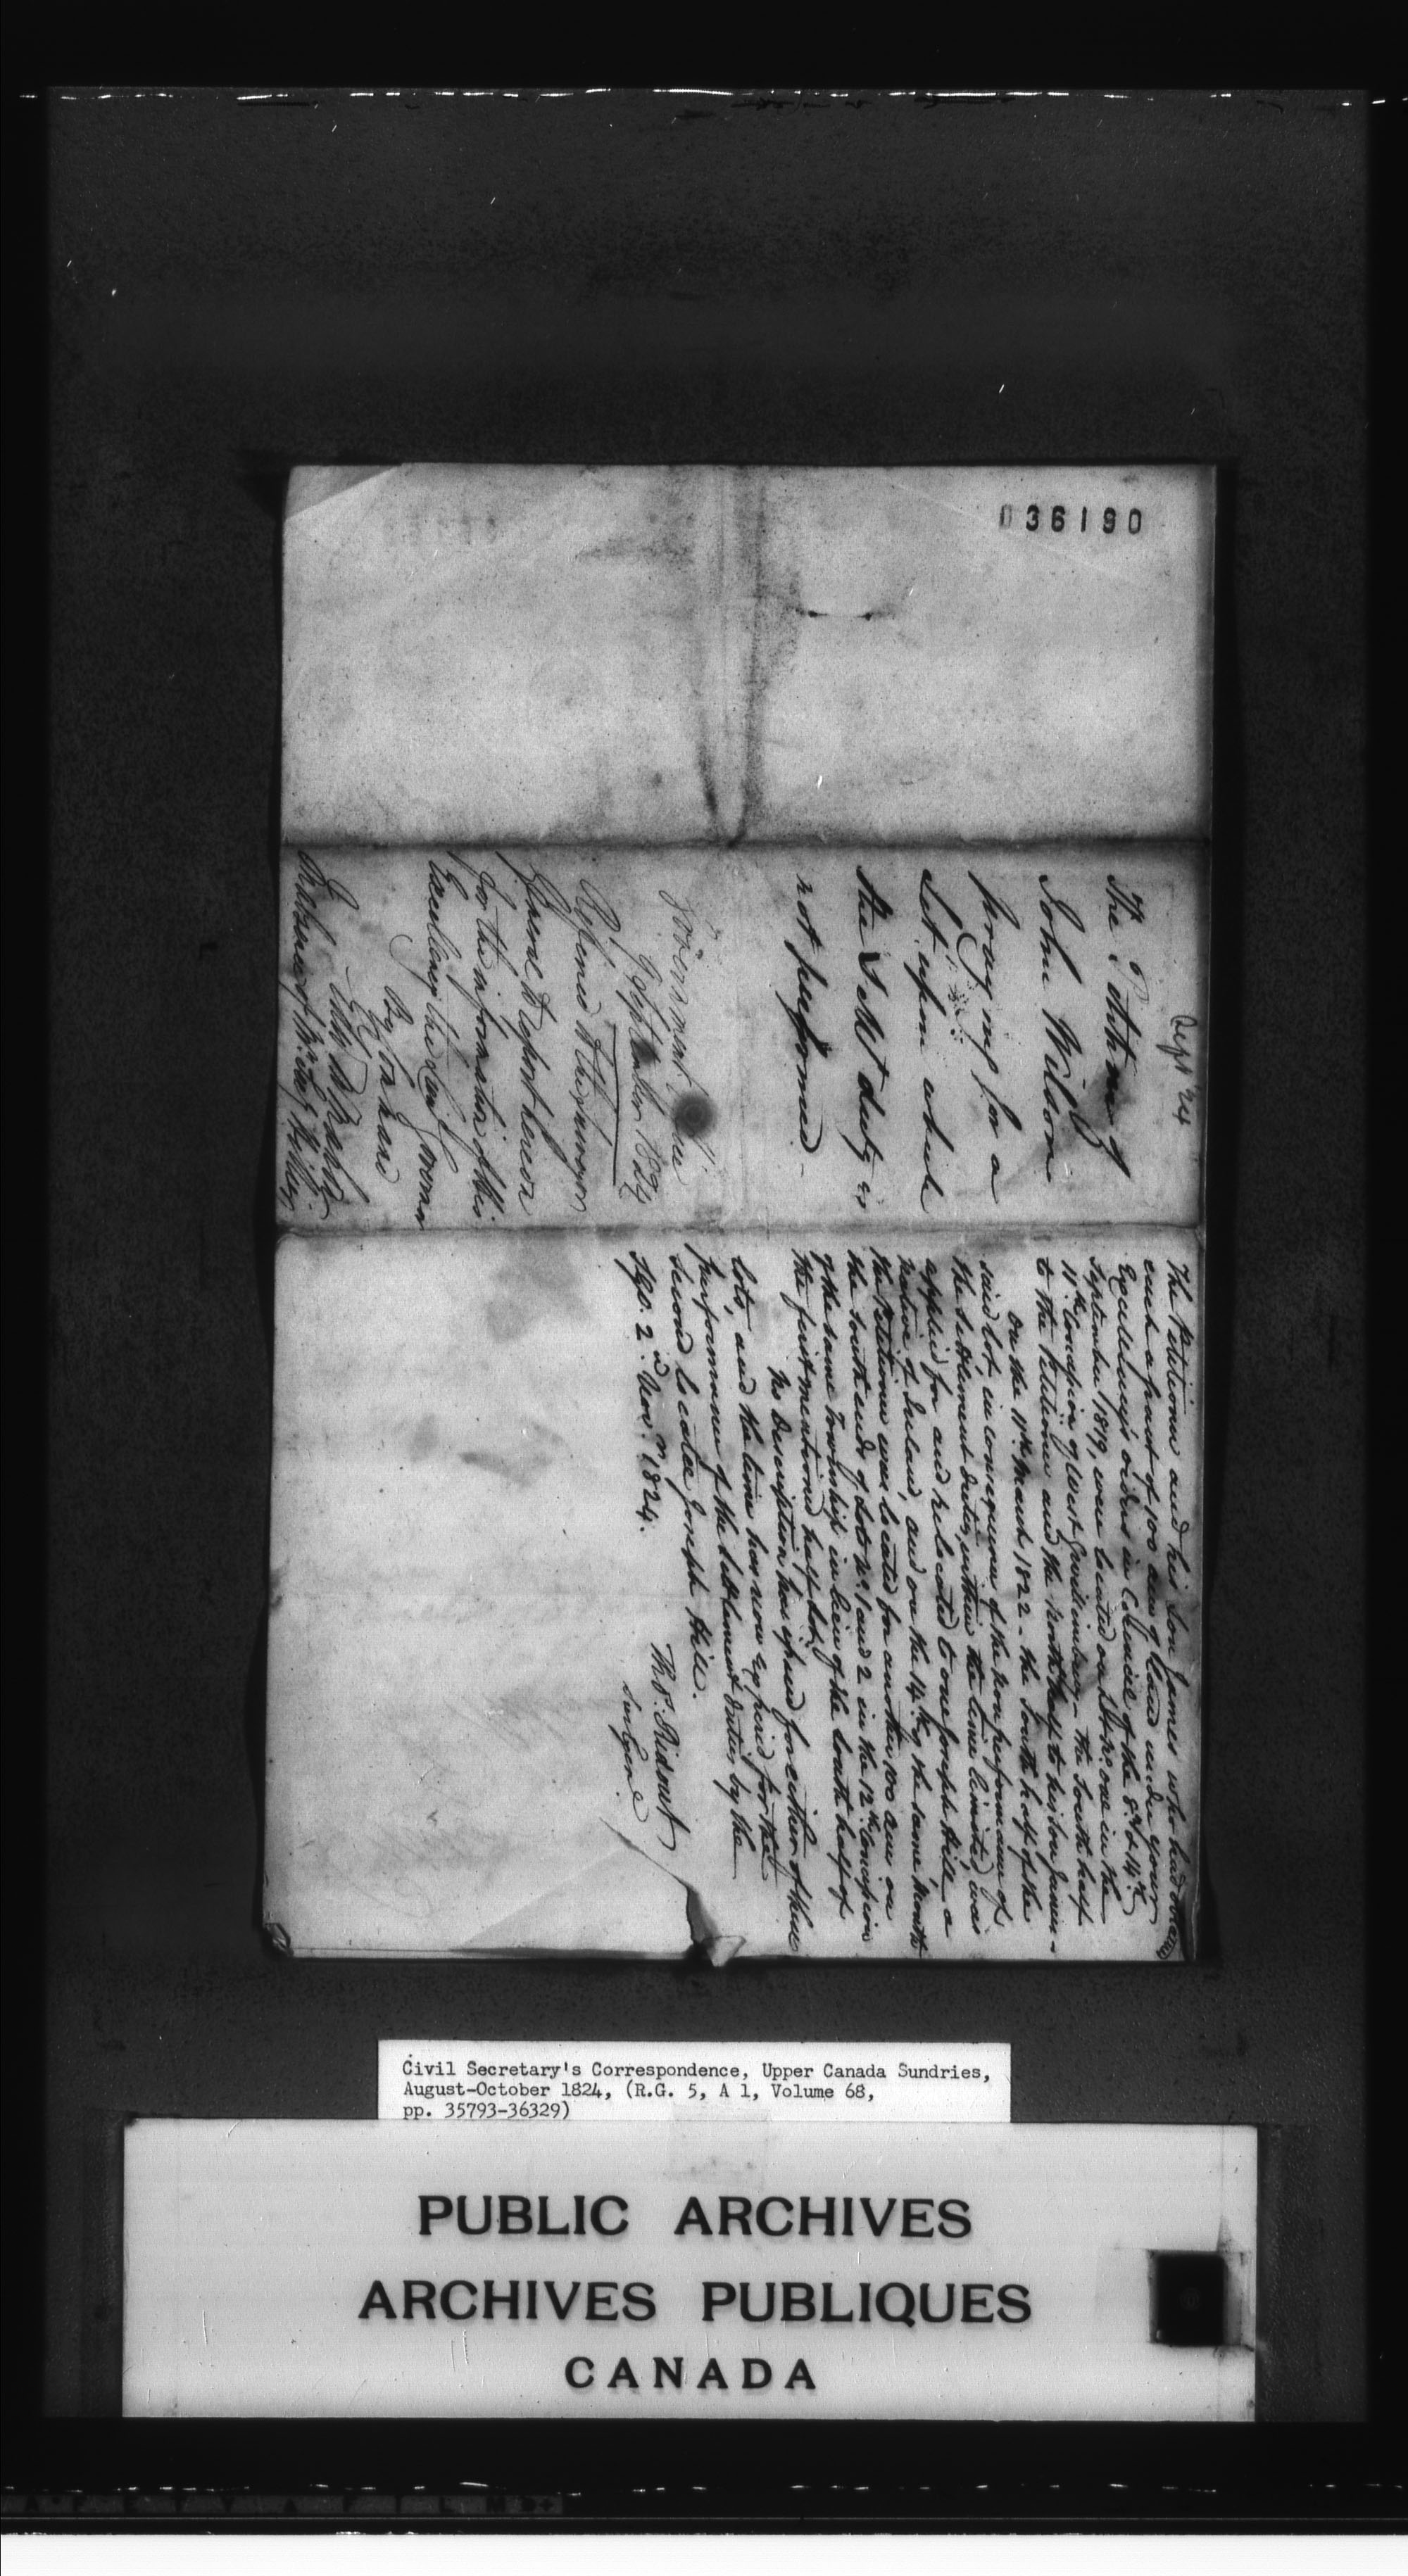 036190
Sept 24
The Petition of
John Wilson
praying for a
Lot upon which
the Settt duty is
not performed -
Government House
9 September 1824
Referred to the Surveyor
General to report hereon
for the information of His
Excellency the Lieut Govern
By Command
The Petitioner and his Son James who had each
each a grant of 100 acres of land under your
Excellency's orders in Council of the 8th & 14th
September 1819, were located on Lot No. one in the
11th Concession of West Gwillimbury - the South half
to the Petitioner and the North half to his Son James -
On the 11th March 1822 - the South half of the
said lot, in consequence of the non performance of
the Settlement duties within the time limited, was
applied for and relocated to one Joseph Hill - a
native of Ireland, and on the 14th of the same Month
the Petitioner was located for another 100 acres on
the South ends of Lots No. 1 and 2 in the 12th Concession
of the same Township in lieu of the South half of
the first mentioned half lot.
No Description has issued for either of these
lots, and the time has now expired for the
performance of the settlement duties by the
second locatee Joseph Hill.
Thos. Ridout
Sur Genl
SGO. 2nd Novr. 1824.
Civil Secretary's Correspondence, Upper Canada Sundries,
August-October 1824, (R.G. 5, A 1, Volume 68,
pp. 35793-36329)
PUBLIC ARCHIVES
ARCHIVES PUBLIQUES
CANADA